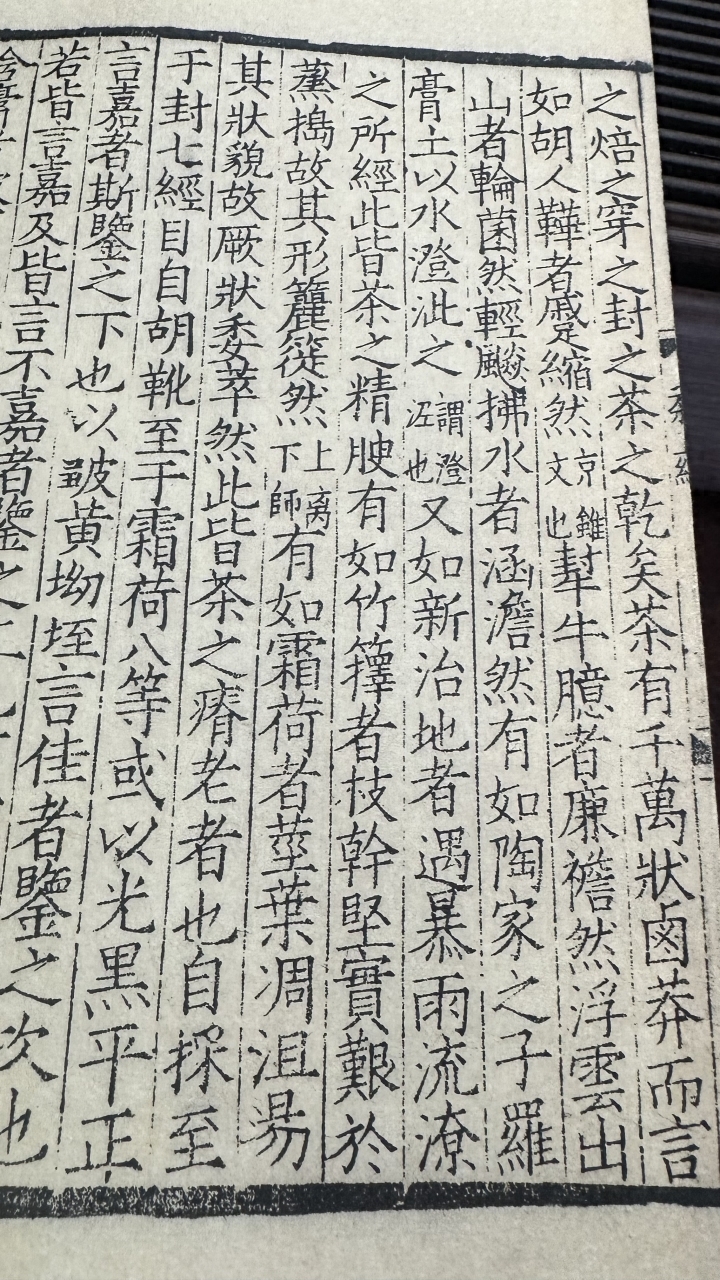 之焙之穿之封之茶之乾矣茶有千萬狀鹵莽而言
如胡人鞾者蹙縮然京錐文也犎牛臆者廉襜然浮雲出
山者輪菌然輕飈拂水者涵澹然有如陶家之子羅
膏土以水澄泚之謂澄泚也又如新治地者遇暴雨流潦
之所經此皆茶之精腴有如竹籜者枝幹堅實艱於
蒸搗故其形籭簁然上离下師有如霜荷者莖葉凋沮昜
其狀貌故厥狀委萃然此皆茶之瘠老者也自採至
于封七經目自胡靴至于霜荷八等或以光黑平正
言嘉者斯鑒之下也以皺黃坳垤言佳者鑒之次也
若皆言嘉及皆言不嘉者鑒之